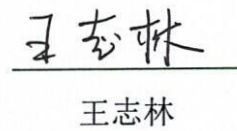 王志林
王志林